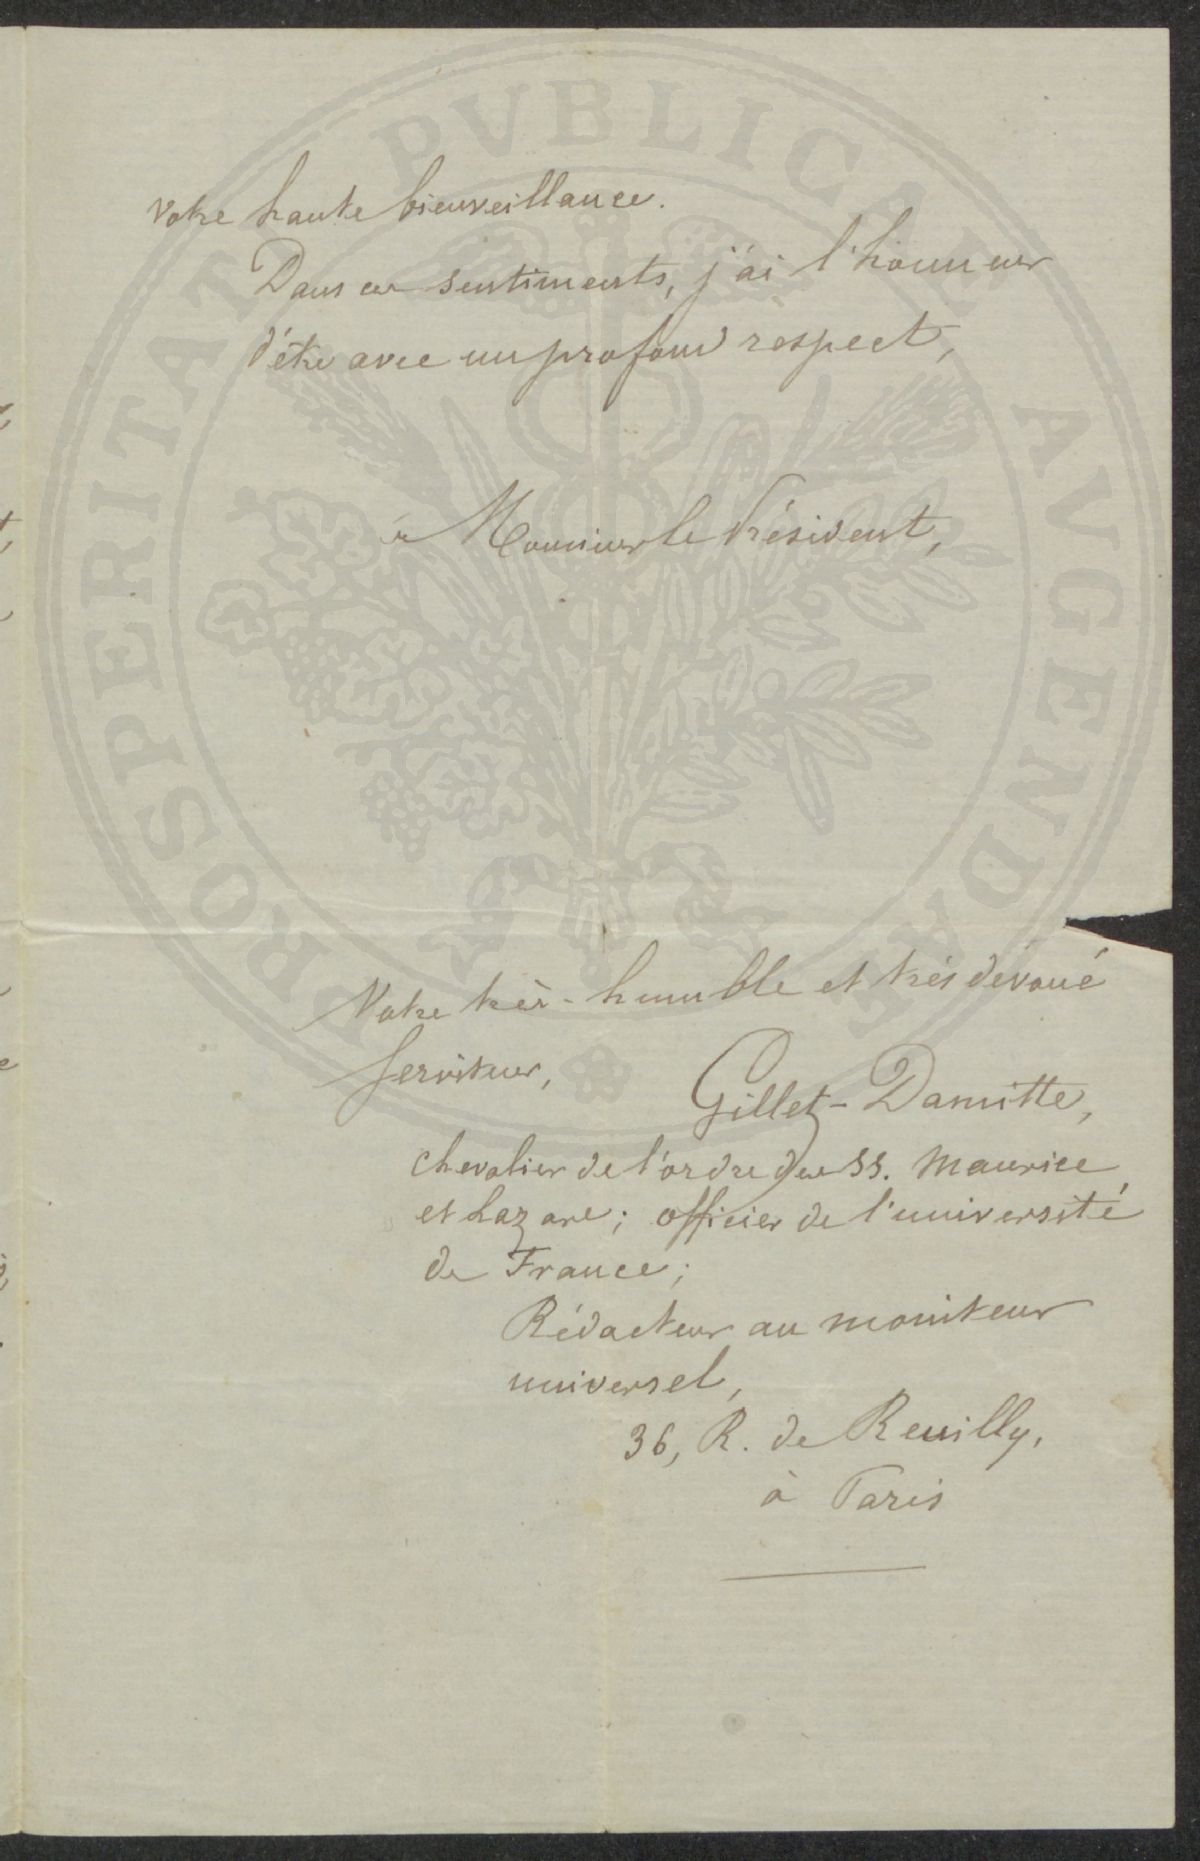 votre haute bienveillance.
Dans ces sentiments, j'ai l'honneur
d'être avec un profond respect,
Monsieur le Président,
Votre très-humble et très dévoué
Serviteur,
Gillet-Damitte,
chevalier de l'ordre des SS. Maurice
et Lazare; officier de l'université
de France;
Rédacteur au moniteur
universel,
36, R. de Reuilly,
à Paris
PROSPERITAT PVBLICAE AVGENDAE